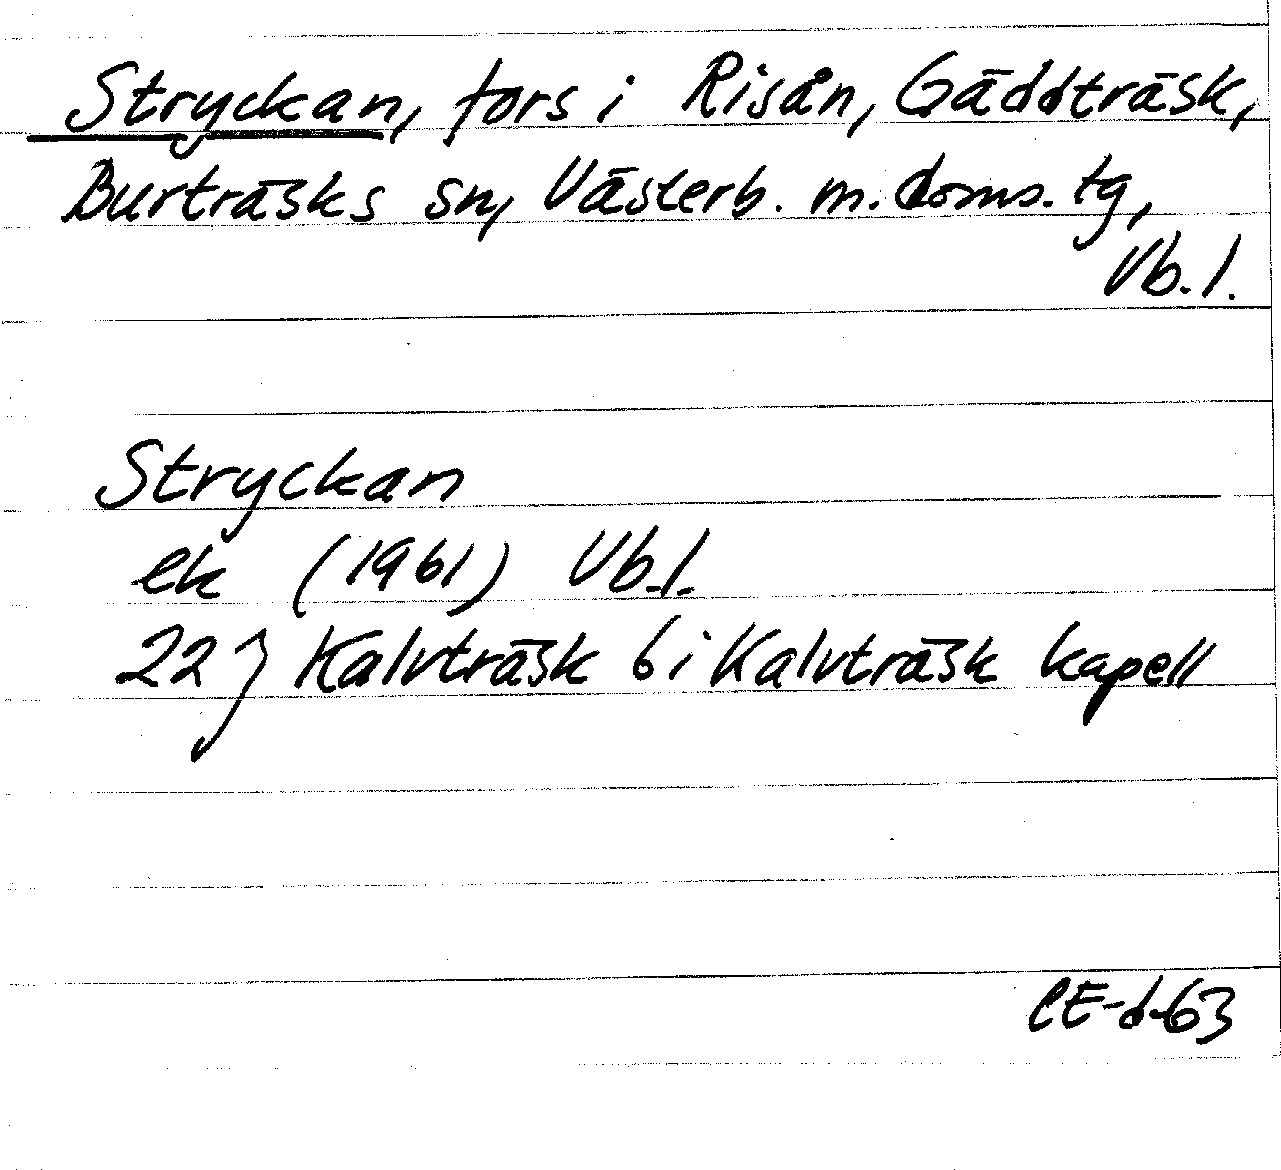 Stryckan, fors i Risån, Gäddträsk,
Burträsks sn, Västerb. m. doms. tg,
Vb. l.
Stryckan
ek (1961) Vb. l.
22 J Kalvträsk 6 i Kalvträsk kapell
CE-d-63